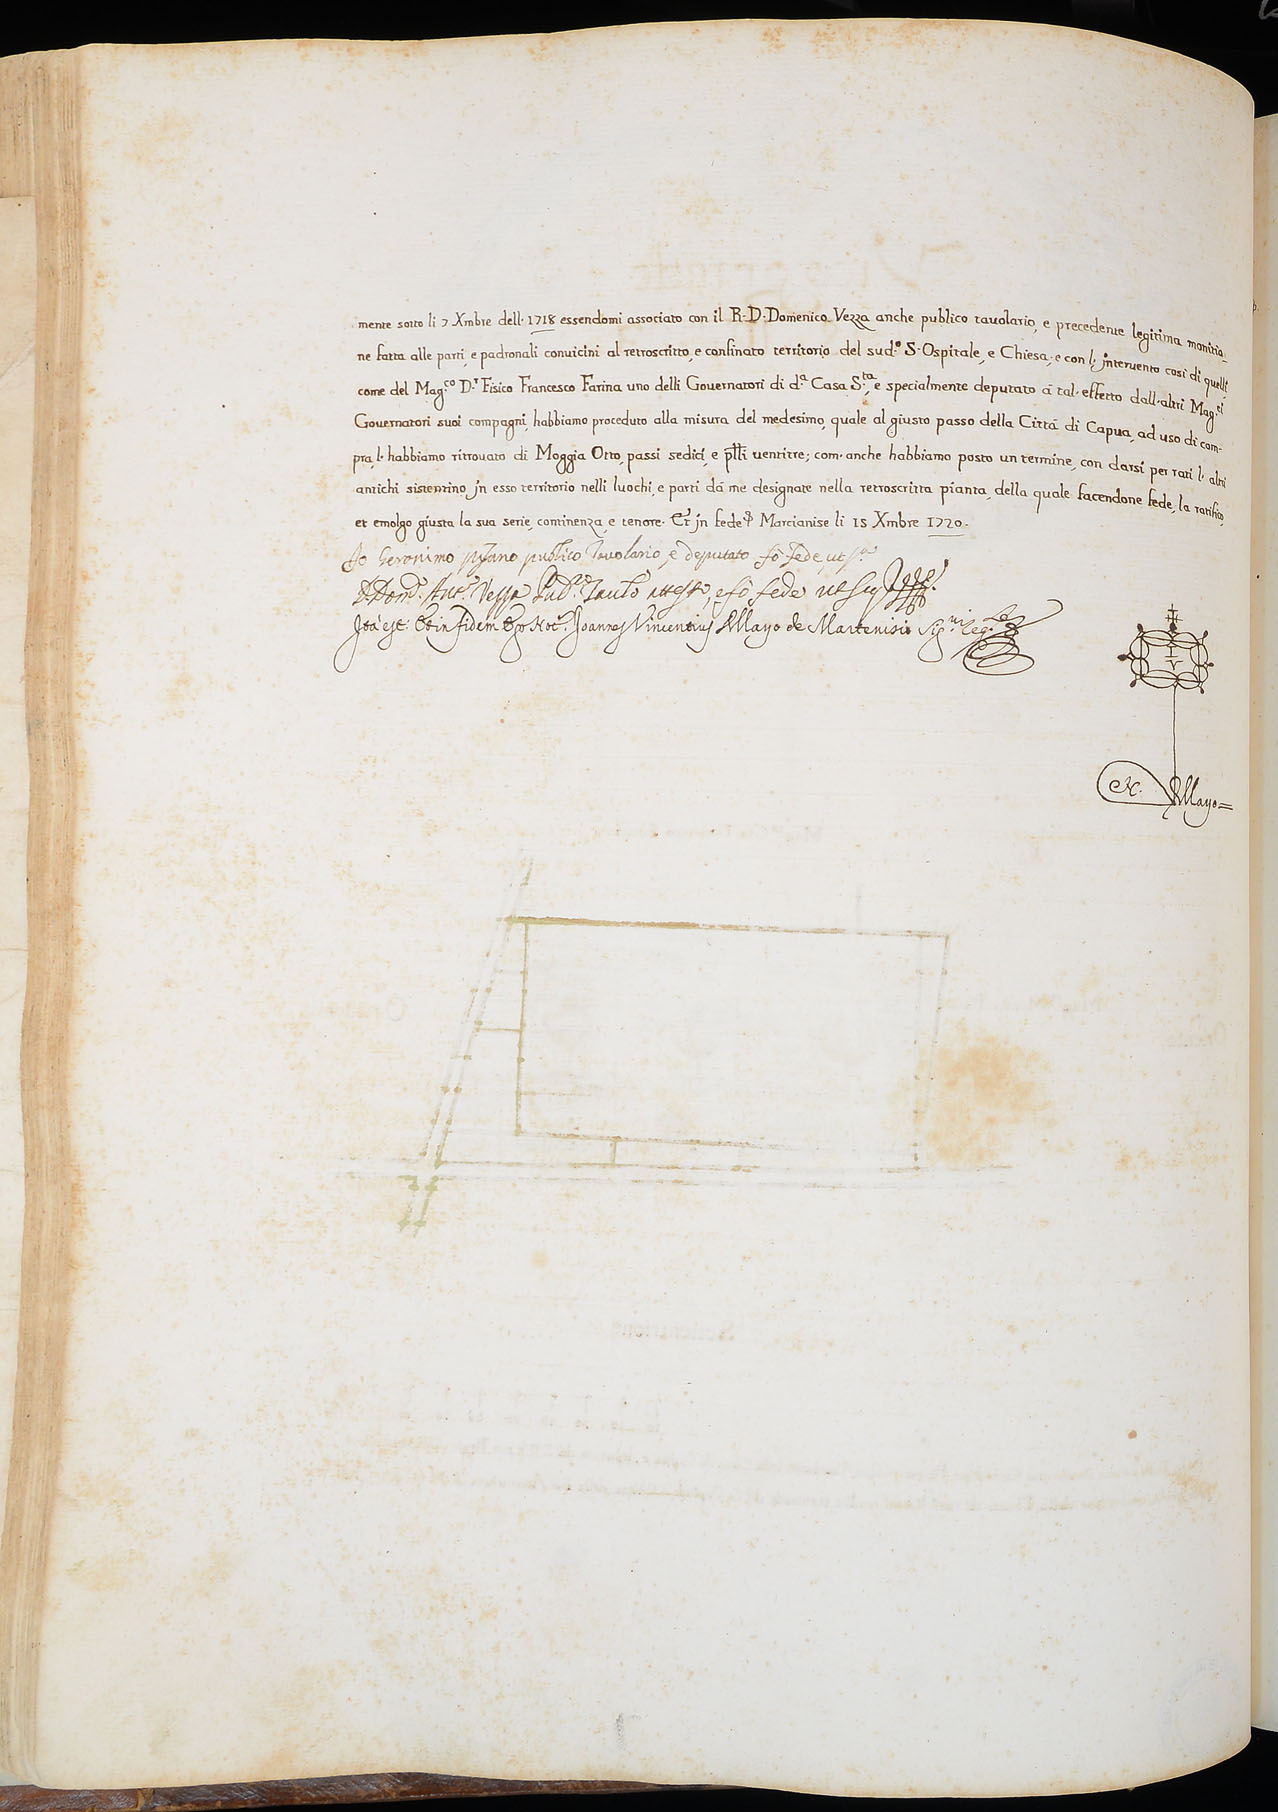 mente sotto li 7 Xmbre dell. 1718 essendomi associato con il R. D. Domenico Vezza anche publico tavolario, e precedente legitima monitio-
ne fatta alle parti, e padronali convicini al retroscritto, e confinato territorio del sud.º S. Ospitale, e Chiesa; e con l' jntervento così di quelli
come del Mag.co D.r Fisico Francesco Farina uno delli Governatori di d.a Casa S.ta, e specialmente deputato à tal. effetto dall. altri Mag.ci
Governatori suoi compagni, habbiamo proceduto alla misura del medesimo, quale al giusto passo della Città di Capua, ad uso di com-
pra, l. habbiamo ritrovato di Moggia Otto, passi sedici, e p̄lli ventitre; com. anche habbiamo posto un termine, con darsi per rati l. altri
antichi sistentino jn esso territorio nelli luochi, e parti dà me designate nella retroscritta pianta, della quale facendone fede, la ratifico,
et emolgo giusta la sua serie, continenza, e tenore. Et jn fede Marcianise li 15 Xmbre 1720.
Io Geronimo publico Tavolario, e deputato fò fede ut s.a
D. Dom.co Ant.º Vezza Pub.co Taul.º attesto, e fò fede ut sup.a
Ita est: Et in fidem Ego Not.s Joannes Vincentius Mayo de Martenisio Sig.vi Reg.s
I
V
N. Mayo=